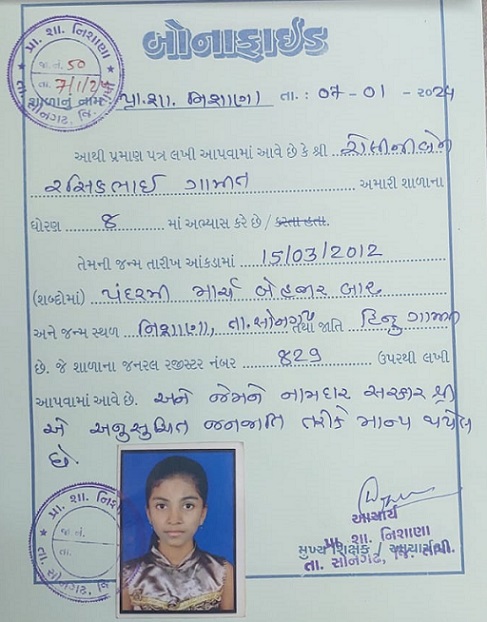 બોનાફાઈડ
પ્રા. શા. નિશાણા
જા નં. 50
તા. 7/1/24
તા. સોનગઢ, જિ.
શાળાનું નામ પ્રા.શા. નિશાણા તા. : 07-01-2024
આથી પ્રમાણ પત્ર લખી આપવામાં આવે છે કે શ્રી
રસિકભાઈ ગામીત અમારી શાળાના
ધોરણ 8 માં અભ્યાસ કરે છે / કરતા હતા.
તેમની જન્મ તારીખ આંકડામાં 15/03/2012
(શબ્દોમાં) પંદરમી માર્ચ બે હજાર બાર
અને જન્મ સ્થળ નિશાણા, તા.સોનગઢ તથા જાતિ હિન્દુ ગામીત
છે. જે શાળાના જનરલ રજીસ્ટર નંબર 829 ઉપરથી લખી
આપવામાં આવે છે. અને જેમને નામદાર સરકાર શ્રી
એ અનુસુચિત જનજાતિ તરીકે માન્ય થયેલ
છે.
પ્રા. શા. નિશાણા
જા નં.
તા.
તા. સોનગઢ, જિ.
આચાર્ય
પ્રા. શા. નિશાણા
મુખ્ય શિક્ષક / આચાર્ય
તા. સોનગઢ, જિ. તાપી.